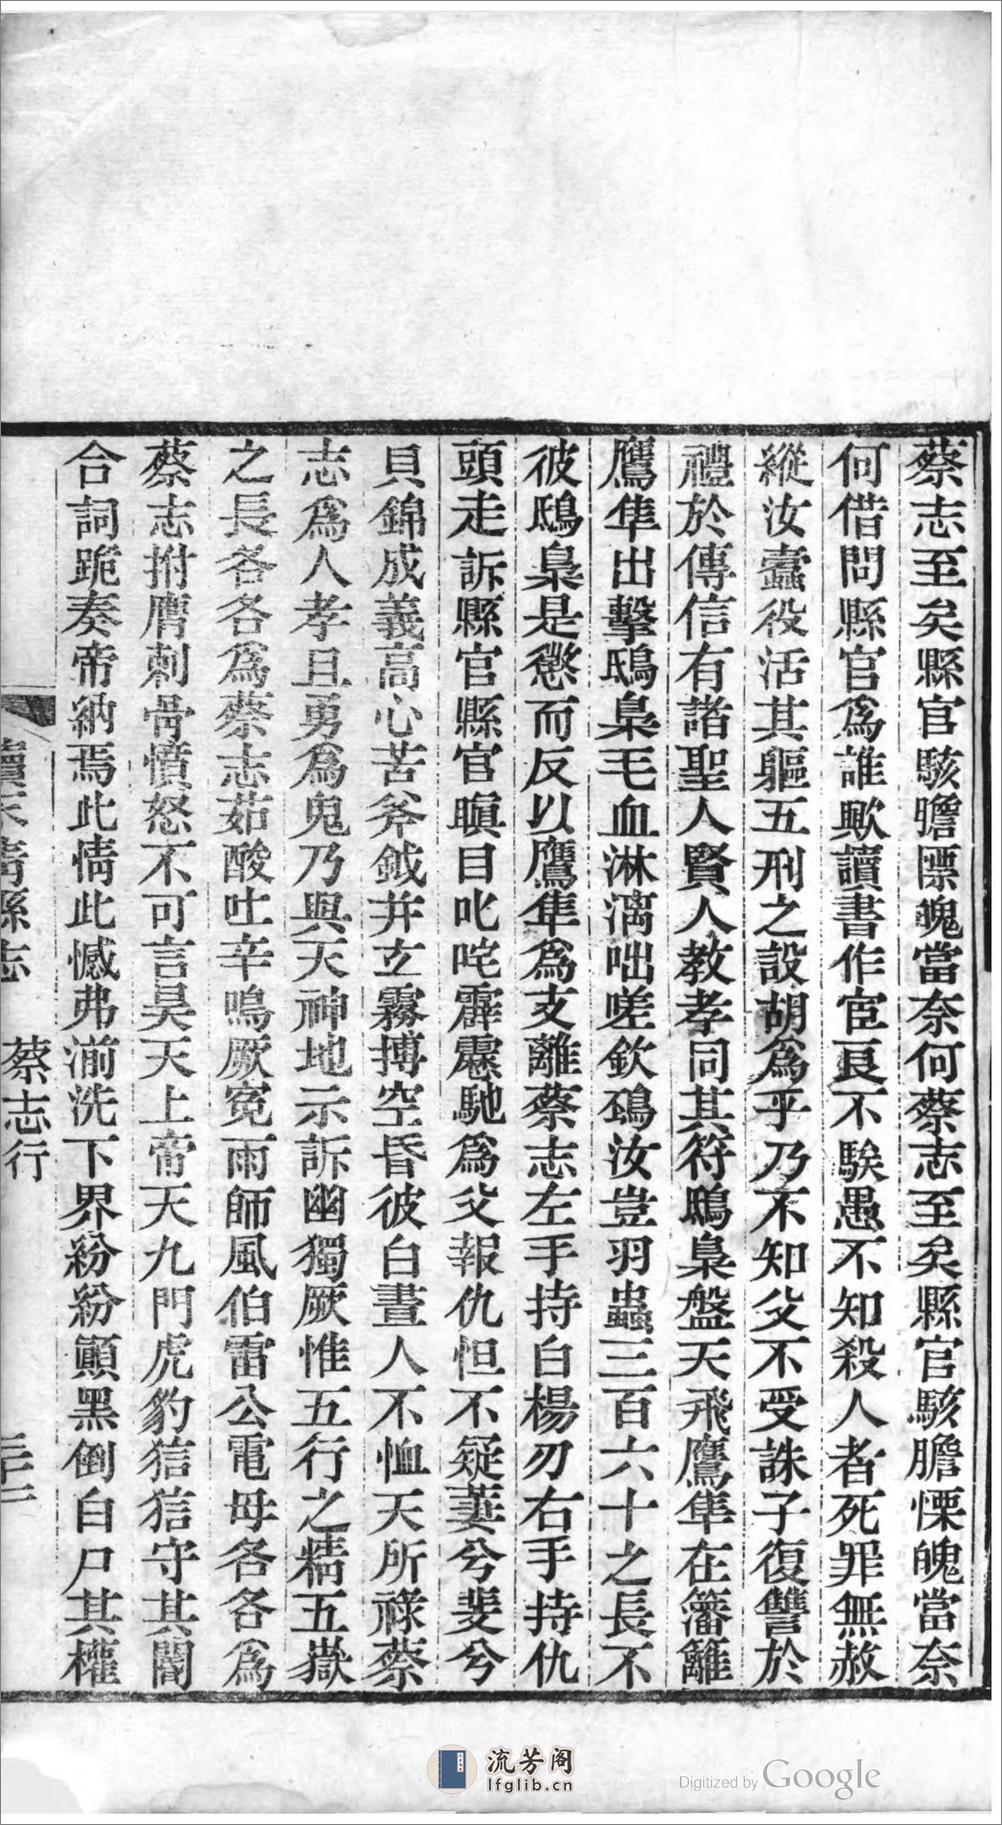 蔡志至矣縣官駭膽慓魄當奈何蔡志至矣縣官駭膽慄魄當奈
何借問縣官爲誰歟讀書作宦良不騃愚不知殺人者死罪無赦
縱汝蠹役活其軀五刑之設胡爲乎乃不知父不受誅子復讐於
禮於傳信有諸聖人賢人教孝同其符鴟梟盤天飛鷹隼在籓籬
鷹隼出擊鴟梟毛血淋漓咄嗟欽䲹汝豈羽蟲三百六十之長不
彼鴟梟是懲而反以鷹隼爲支離蔡志左手持白楊刃右手持仇
頭走訴縣官縣官瞋目叱咤霹靂馳爲父報仇怛不疑萋兮斐兮
貝錦成義高心苦斧鉞并立霧搏空昏彼白晝人不恤天所祿蔡
志爲人孝且勇爲鬼乃與天神地示訴幽獨厥惟五行之精五嶽
之長各各爲蔡志茹酸吐辛鳴厥寃雨師風伯雷公電母各各爲
蔡志拊膺刺骨憤怒不可言昊天上帝天九門虎豹狺狺守其閽
合詞跪奏帝納焉此情此憾弗湔洗下界紛紛顚黑倒白尸其權
蔡志行
流芳阁
lfglib.cn
Digitized by Google